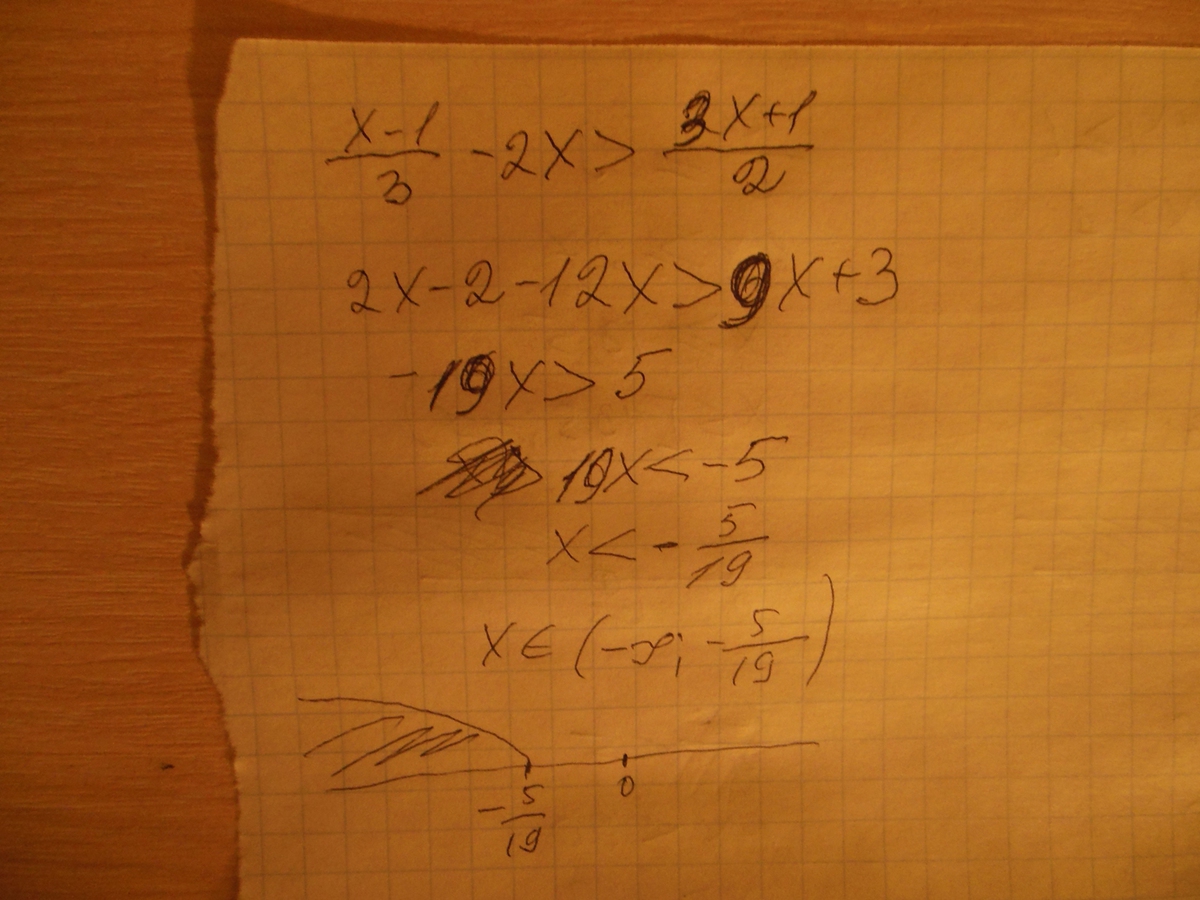 x-1/3 -2x > 3x+1/2
2x-2-12x>9x+3
-19x>5
19x<-5
x<-5/19
x∈(-∞; -5/19)
-5/19 0